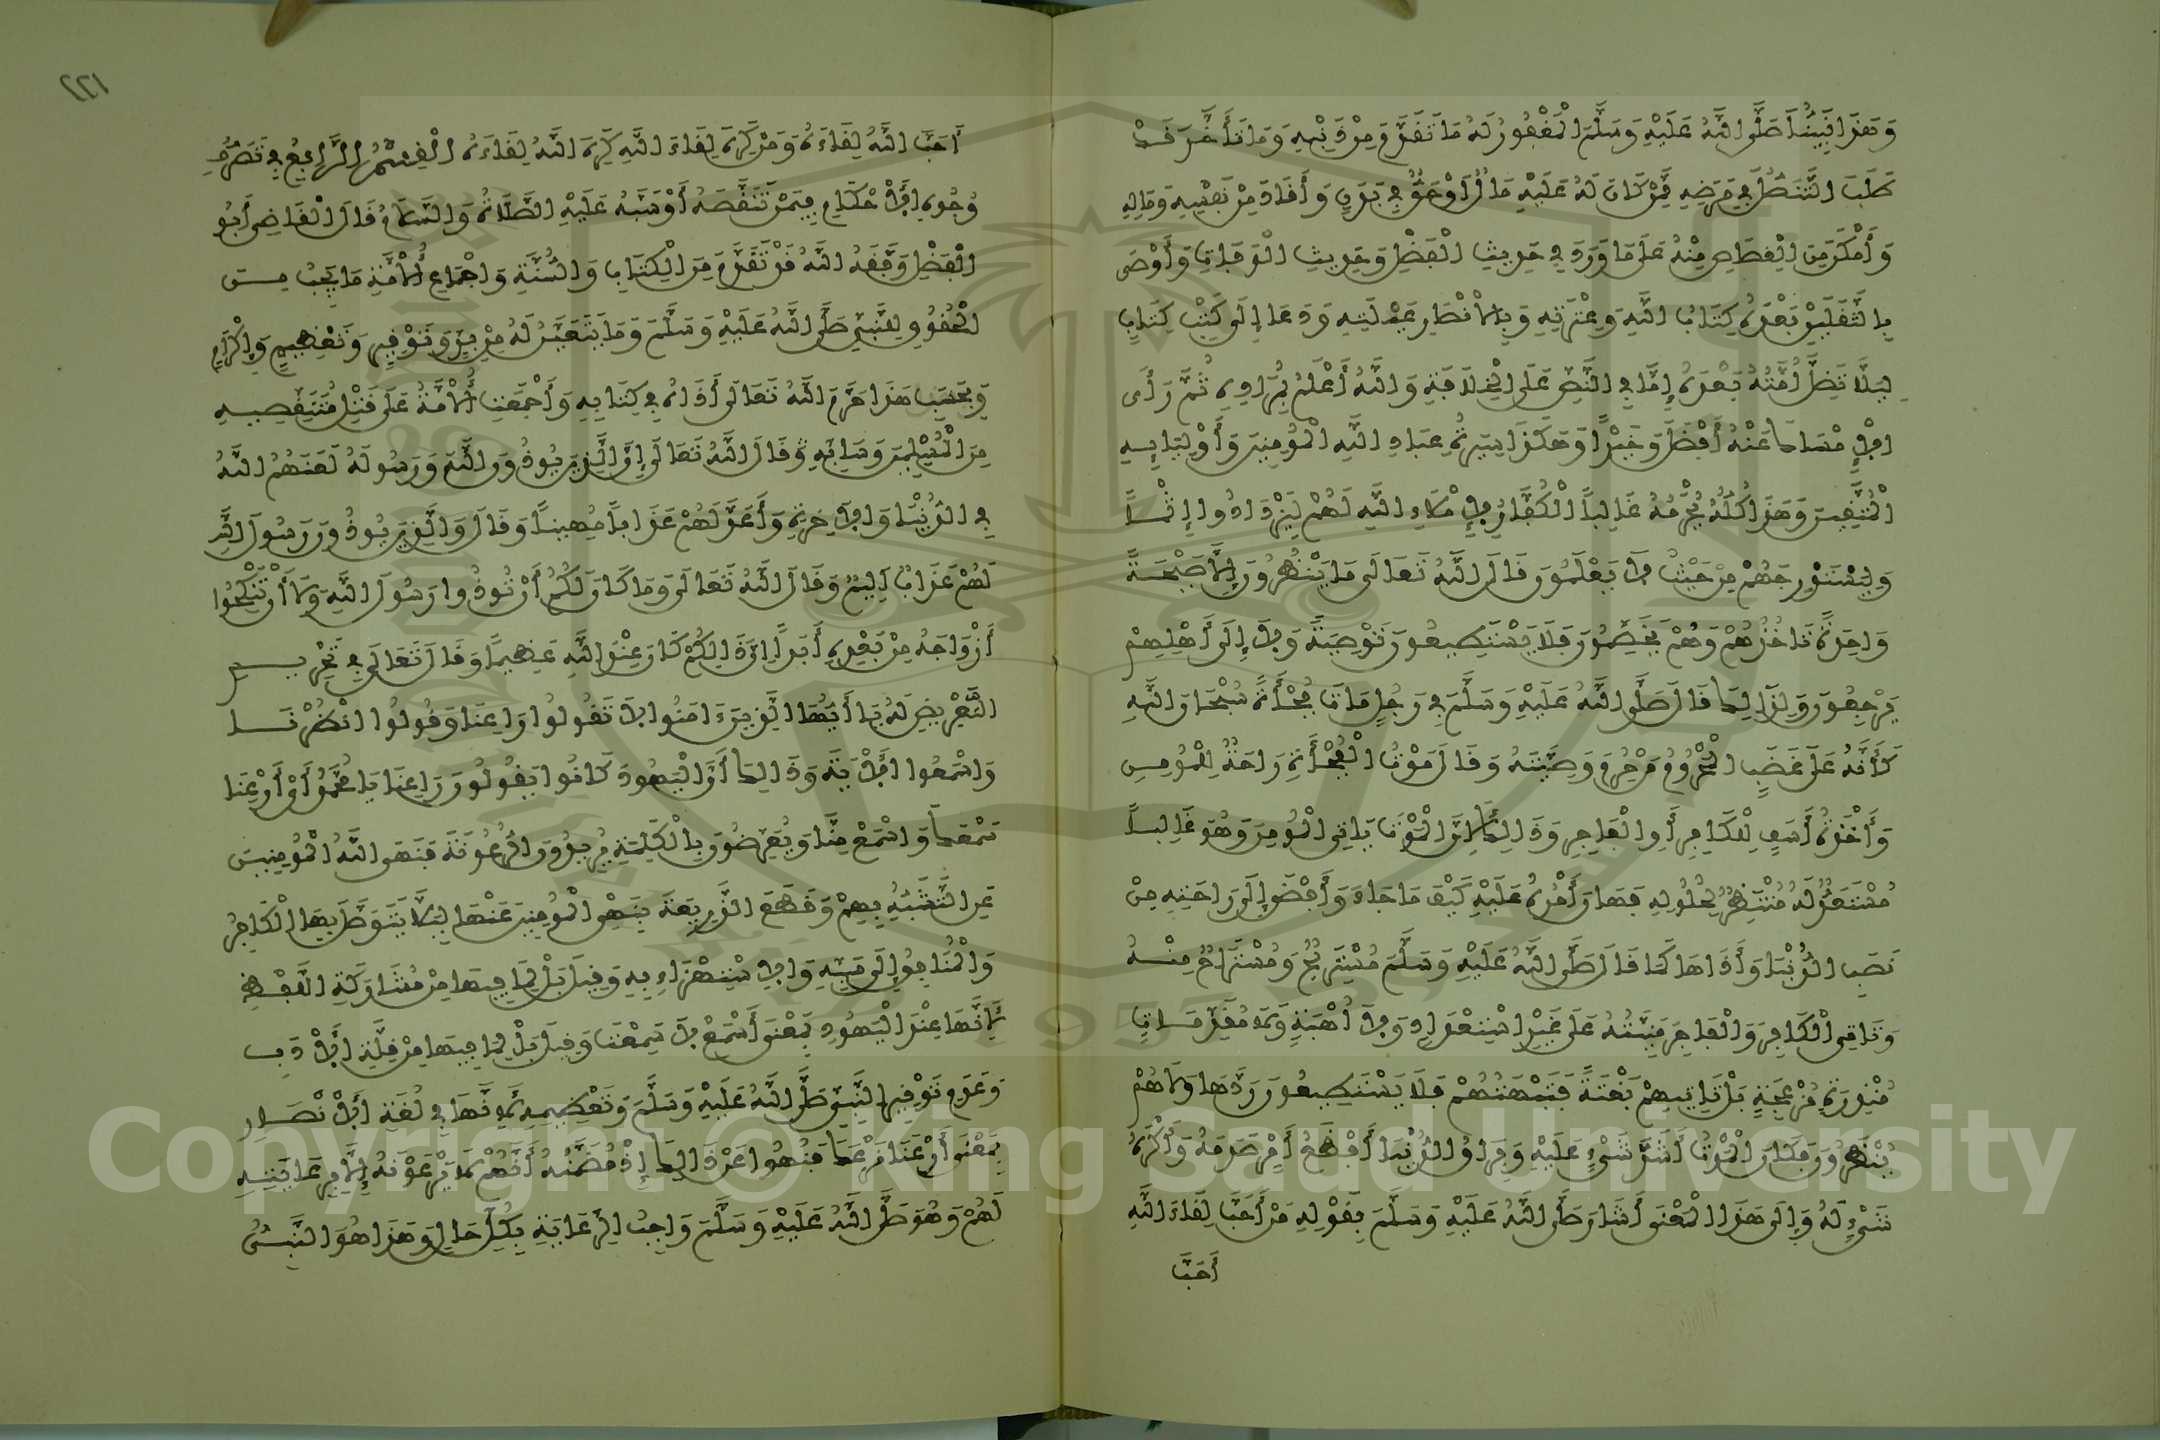 وَهَذَا نَبِيُّنَا صَلَّى اللَّهُ عَلَيْهِ وَسَلَّمَ الْمَغْفُورُ لَهُ مَا تَقَدَّمَ مِنْ ذَنْبِهِ وَمَا تَأَخَّرَ قَدْ
طَلَبَ التَّنَصُّلَ فِي مَرَضِهِ مِمَّنْ كَانَ لَهُ عَلَيْهِ مَالٌ أَوْ حَقٌّ فِي بَدَنٍ وَأَقَادَ مِنْ نَفْسِهِ وَمَالِهِ
وَأَمْكَنَ مِنَ الْقِصَاصِ مِنْهُ عَلَى مَا وَرَدَ فِي حَدِيثِ الْفَضْلِ وَحَدِيثِ الْوَفَاةِ وَأَوْصَى
بِالثَّقَلَيْنِ بَعْدَهُ كِتَابِ اللَّهِ وَعِتْرَتِهِ وَبِالْأَنْصَارِ عَيْبَتِهِ وَدَعَا إِلَى كَتْبِ كِتَابٍ
لِيَلَّا تَضِلَّ أُمَّتُهُ بَعْدَهُ إِمَّا فِي النَّصِّ عَلَى الْخِلَافَةِ وَاللَّهُ أَعْلَمُ بِمُرَادِهِ ثُمَّ رَأَى
الْإِمْسَاكَ عَنْهُ أَفْضَلَ وَخَيْرًا وَهَكَذَا سِيرَةُ عِبَادِ اللَّهِ الْمُؤْمِنِينَ وَأَوْلِيَائِهِ
الْمُتَّقِينَ وَهَذَا كُلُّهُ يُحْرَمُهُ غَالِبًا الْكُفَّارُ لِإِمْلَاءِ اللَّهِ لَهُمْ لِيَزْدَادُوا إِثْمًا
وَلِيَسْتَدْرِجَهُمْ مِنْ حَيْثُ لَا يَعْلَمُونَ قَالَ اللَّهُ تَعَالَى مَا يَنْظُرُونَ إِلَّا صَيْحَةً
وَاحِدَةً تَأْخُذُهُمْ وَهُمْ يَخَصِّمُونَ فَلَا يَسْتَطِيعُونَ تَوْصِيَةً وَلَا إِلَى أَهْلِهِمْ
يَرْجِعُونَ وَلِذَلِكَ قَالَ صَلَّى اللَّهُ عَلَيْهِ وَسَلَّمَ فِي رَجُلٍ مَاتَ فُجْأَةً سُبْحَانَ اللَّهِ
كَأَنَّهُ عَلَى غَضَبٍ الْمَحْرُومُ مَنْ حُرِمَ وَصِيَّتَهُ وَقَالَ مَوْتُ الْفُجْأَةِ رَاحَةٌ لِلْمُؤْمِنِ
وَأَخْذَةُ أَسَفٍ لِلْكَافِرِ أَوِ الْفَاجِرِ وَذَلِكَ لِأَنَّ الْمَوْتَ يَأْتِي الْمُؤْمِنَ وَهُوَ غَالِبًا
مُسْتَعِدٌّ لَهُ مُنْتَظِرٌ لِحُلُولِهِ فَهَانَ أَمْرُهُ عَلَيْهِ كَيْفَ مَا جَاءَ وَأَفْضَى إِلَى رَاحَتِهِ مِنْ
نَصَبِ الدُّنْيَا وَأَذَاهَا كَمَا قَالَ صَلَّى اللَّهُ عَلَيْهِ وَسَلَّمَ مُسْتَرِيحٌ وَمُسْتَرَاحٌ مِنْهُ
وَتَأْتِي الْكَافِرَ وَالْفَاجِرَ مَنِيَّتُهُ عَلَى غَيْرِ اسْتِعْدَادٍ وَلَا أُهْبَةٍ وَلَا مُقَدِّمَاتٍ
مُنْذِرَةٍ مُزْعِجَةٍ بَلْ تَأْتِيهِمْ بَغْتَةً فَتَبْهَتُهُمْ فَلَا يَسْتَطِيعُونَ رَدَّهَا وَلَا هُمْ
يُنْظَرُونَ فَكَانَ الْمَوْتُ أَشَدَّ شَيْءٍ عَلَيْهِ وَفِرَاقُ الدُّنْيَا أَفْظَعَ أَمْرٍ صَدَمَهُ وَأَكْرَهَ
شَيْءٍ لَهُ وَإِلَى هَذَا الْمَعْنَى أَشَارَ صَلَّى اللَّهُ عَلَيْهِ وَسَلَّمَ بِقَوْلِهِ مَنْ أَحَبَّ لِقَاءَ اللَّهِ
أَحَبَّ
٢٢١
أَحَبَّ اللَّهُ لِقَاءَهُ وَمَنْ كَرِهَ لِقَاءَ اللَّهِ كَرِهَ اللَّهُ لِقَاءَهُ الْقِسْمُ الرَّابِعُ فِي تَصَرُّفِ
وُجُوهِ الْأَحْكَامِ فِيمَنْ تَنَقَّصَهُ أَوْ سَبَّهُ عَلَيْهِ الصَّلَاةُ وَالسَّلَامُ قَالَ الْقَاضِي أَبُو
الْفَضْلِ وَفَّقَهُ اللَّهُ قَدْ تَقَدَّمَ مِنَ الْكِتَابِ وَالسُّنَّةِ وَإِجْمَاعِ الْأُمَّةِ مَا يَجِبُ مِنَ
الْحُقُوقِ لِلنَّبِيِّ صَلَّى اللَّهُ عَلَيْهِ وَسَلَّمَ وَمَا يَتَعَيَّنُ لَهُ مِنْ بِرٍّ وَتَوْقِيرٍ وَتَعْظِيمٍ وَإِكْرَامٍ
وَبِحَسَبِ هَذَا حَرَّمَ اللَّهُ تَعَالَى أَذَاهُ فِي كِتَابِهِ وَأَجْمَعَتِ الْأُمَّةُ عَلَى قَتْلِ مُتَنَقِّصِهِ
مِنَ الْمُسْلِمِينَ وَسَابِّهِ وَقَالَ اللَّهُ تَعَالَى إِنَّ الَّذِينَ يُؤْذُونَ اللَّهَ وَرَسُولَهُ لَعَنَهُمُ اللَّهُ
فِي الدُّنْيَا وَالْآخِرَةِ وَأَعَدَّ لَهُمْ عَذَابًا مُهِينًا وَقَالَ وَالَّذِينَ يُؤْذُونَ رَسُولَ اللَّهِ
لَهُمْ عَذَابٌ أَلِيمٌ وَقَالَ اللَّهُ تَعَالَى وَمَا كَانَ لَكُمْ أَنْ تُؤْذُوا رَسُولَ اللَّهِ وَلَا أَنْ تَنْكِحُوا
أَزْوَاجَهُ مِنْ بَعْدِهِ أَبَدًا إِنَّ ذَلِكُمْ كَانَ عِنْدَ اللَّهِ عَظِيمًا وَقَالَ تَعَالَى فِي تَحْرِيمِ
التَّعْرِيضِ لَهُ يَا أَيُّهَا الَّذِينَ ءَامَنُوا لَا تَقُولُوا رَاعِنَا وَقُولُوا انْظُرْنَا
وَاسْمَعُوا الْآيَةَ وَذَلِكَ أَنَّ الْيَهُودَ كَانُوا يَقُولُونَ رَاعِنَا يَا مُحَمَّدُ أَيْ أَرْعِنَا
سَمْعَكَ وَاسْمَعْ مِنَّا وَيُعَرِّضُونَ بِالْكَلِمَةِ يُرِيدُونَ الرُّعُونَةَ فَنَهَى اللَّهُ الْمُؤْمِنِينَ
عَنِ التَّشَبُّهِ بِهِمْ وَقَطَعَ الذَّرِيعَةَ بِنَهْيِ الْمُؤْمِنِينَ عَنْهَا لِيَلَّا يَتَوَصَّلَ بِهَا الْكَافِرُ
وَالْمُنَافِقُ إِلَى سَبِّهِ وَالِاسْتِهْزَاءِ بِهِ وَقِيلَ بَلْ لِمَا فِيهَا مِنْ مُشَارَكَةِ اللَّفْظِ
لِأَنَّهَا عِنْدَ الْيَهُودِ بِمَعْنَى اسْمَعْ لَا سَمِعْتَ وَقِيلَ بَلْ لِمَا فِيهَا مِنْ قِلَّةِ الْأَدَبِ
وَعَدَمِ تَوْقِيرِ النَّبِيِّ صَلَّى اللَّهُ عَلَيْهِ وَسَلَّمَ وَتَعْظِيمِهِ لِأَنَّهَا فِي لُغَةِ الْأَنْصَارِ
بِمَعْنَى أَرْعِنَا نَرْعَكَ فَنُهُوا عَنْ ذَلِكَ إِذْ مُضَمَّنُهُ أَنَّهُمْ لَا يَرْعَوْنَهُ إِلَّا بِرِعَايَتِهِ
لَهُمْ وَهُوَ صَلَّى اللَّهُ عَلَيْهِ وَسَلَّمَ وَاجِبُ الرِّعَايَةِ بِكُلِّ حَالٍ وَهَذَا هُوَ النَّبِيُّ
Copyright © King Saud University